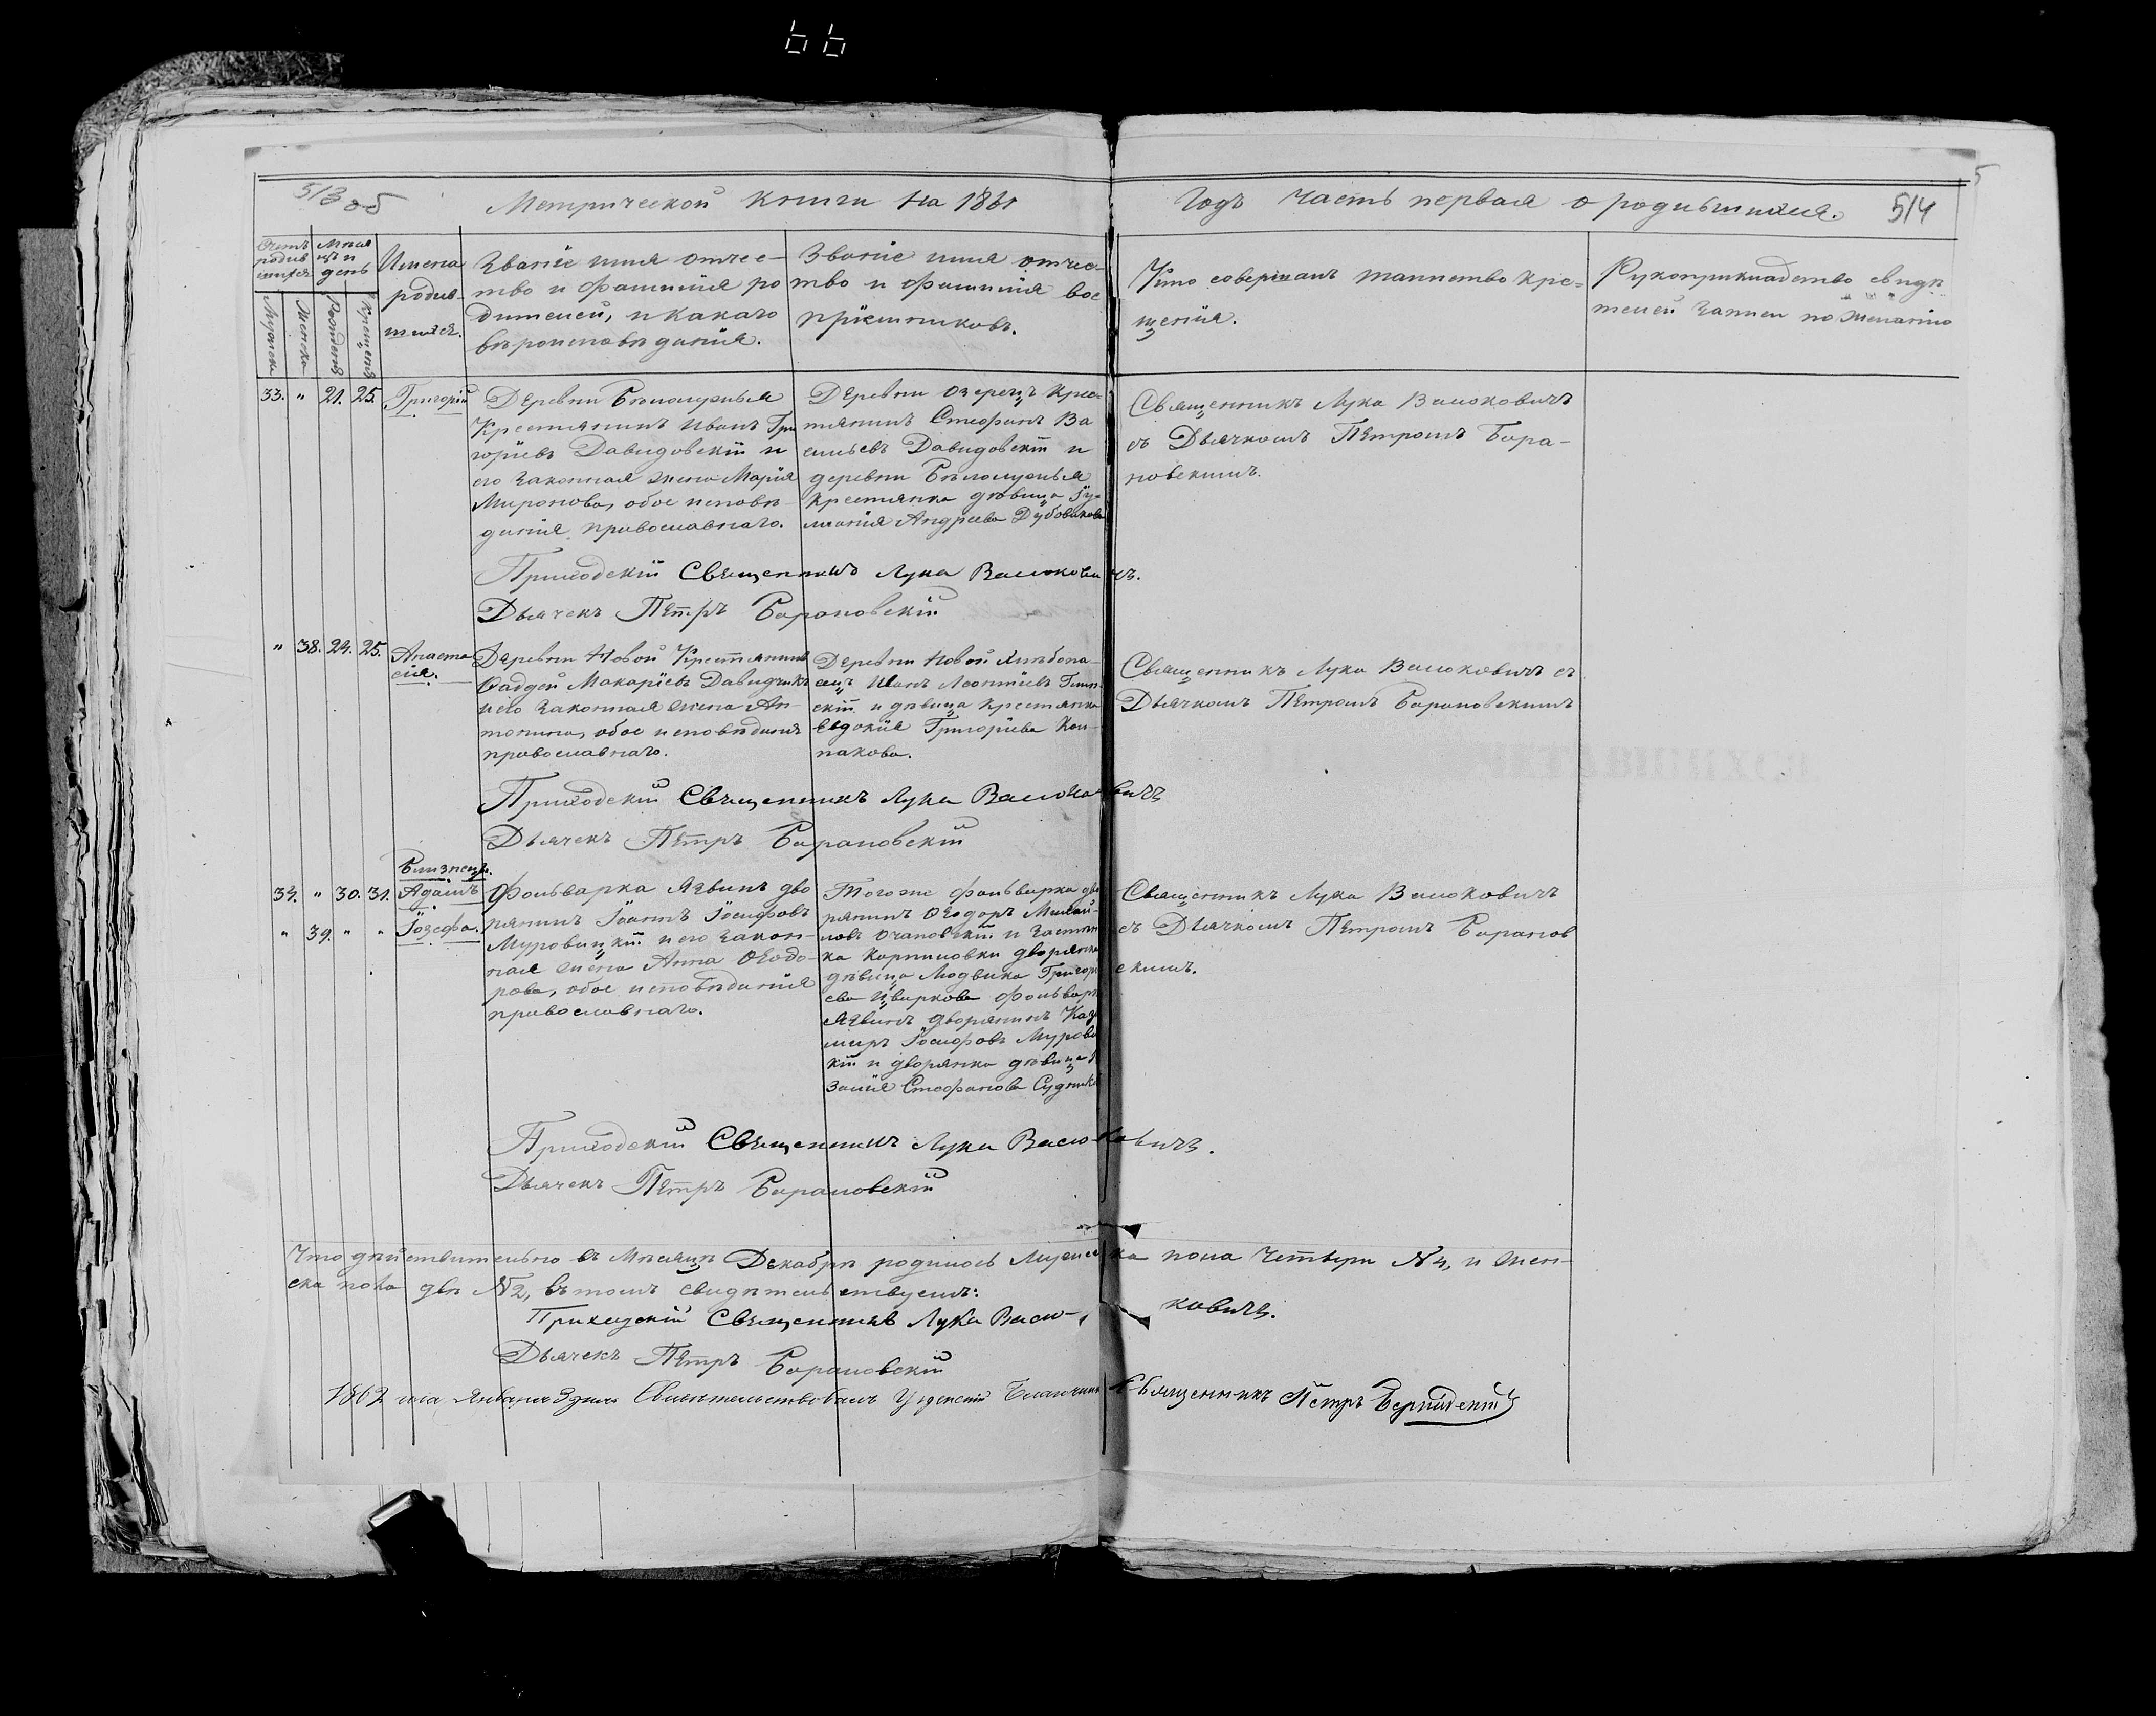 66
513 об
Метрической книги на 1861
Годъ часть первая о родившихся.
514
5
Счетъ родившихся
Месяцъ и день
Мужеска
Женска
Рожденія
Крещенія
Имена
родив-
шихся.
Званіе имя отчес-
тво и фамилія ро
дителей, и какаго
вѣроисповѣданія.
Званіе имя отчес-
тво и фамилія вос
пріемниковъ.
Кто совершалъ таинство кре-
щенія.
Рукоприкладство свидѣ
телей записи по желанію
33. " 21. 25. Григорій
Деревни Бѣлолужья
Крестьянинъ Иванъ Гри
горіевъ Давидовскій и
его законная жена Марія
Миронова, обое исповѣ-
данія православнаго.
Деревни Озерецъ Крес-
тянинъ Стефанъ Ва
сильевъ Давидовскій и
деревни Бѣлолужья
крестянка дѣвица Іу-
лианія Андреева Дубовикова
Священникъ Лука Васюковичъ
съ Дьячкомъ Петромъ Бара-
новскимъ.
Приходскій Священникъ Лука Васюковичъ.
Дьячекъ Петръ Барановскій
" 38. 24. 25. Анаста
сія.
Деревни Новой Крестянинъ
Фадей Макаріевъ Давидчикъ
и его законная жена Ан-
тонина, обое исповѣданія
православнаго.
Деревни Новой Хлѣбопа-
сецъ Иванъ Леонтіевъ
скій и дѣвица крестянка
Евдокія Григоріева Кол-
пакова.
Священникъ Лука Васюковичъ съ
Дьячкомъ Петромъ Барановскимъ
Приходскій Священникъ Лука Васюковичъ
Дьячекъ Петръ Барановскій
Близнецы.
34. " 30. 31. Адамъ
" 39. " " Іозефа.
Фольварка Язвинъ дво
рянинъ Іоаннъ Іосифовъ
Муровицкій и его закон-
ная жена Анна Ѳеодо-
рова, обое исповѣданія
православнаго.
Того же фольварка дво
рянинъ Ѳеодоръ Михай-
ловъ Очаповскій и застен
ка Карпиловки дворянка
дѣвица Людвика Григорі
ева Цвиркова фольварк
Язвинъ дворянинъ Кази
миръ Іосифовъ Мурови
кій и дворянка дѣвица
залія Стефанова Судник
Священникъ Лука Васюковичъ
съ Дьячкомъ Петромъ Баранов
скимъ.
Приходскій Священникъ Лука Васюковичъ.
Дьячекъ Петръ Барановскій
Что дѣйствительно въ Мѣсяцѣ Декабрѣ родилось Мужеска пола Четыри №4, и жен-
ска пола двѣ №2, въ томъ свидѣтельствуемъ:
Приходскій Священникъ Лука Васю-ковичъ.
Дьячекъ Петръ Барановскій
1862 года Января 3 дня Свидѣтельствовалъ Узденскій Благочинн Священникъ Петръ